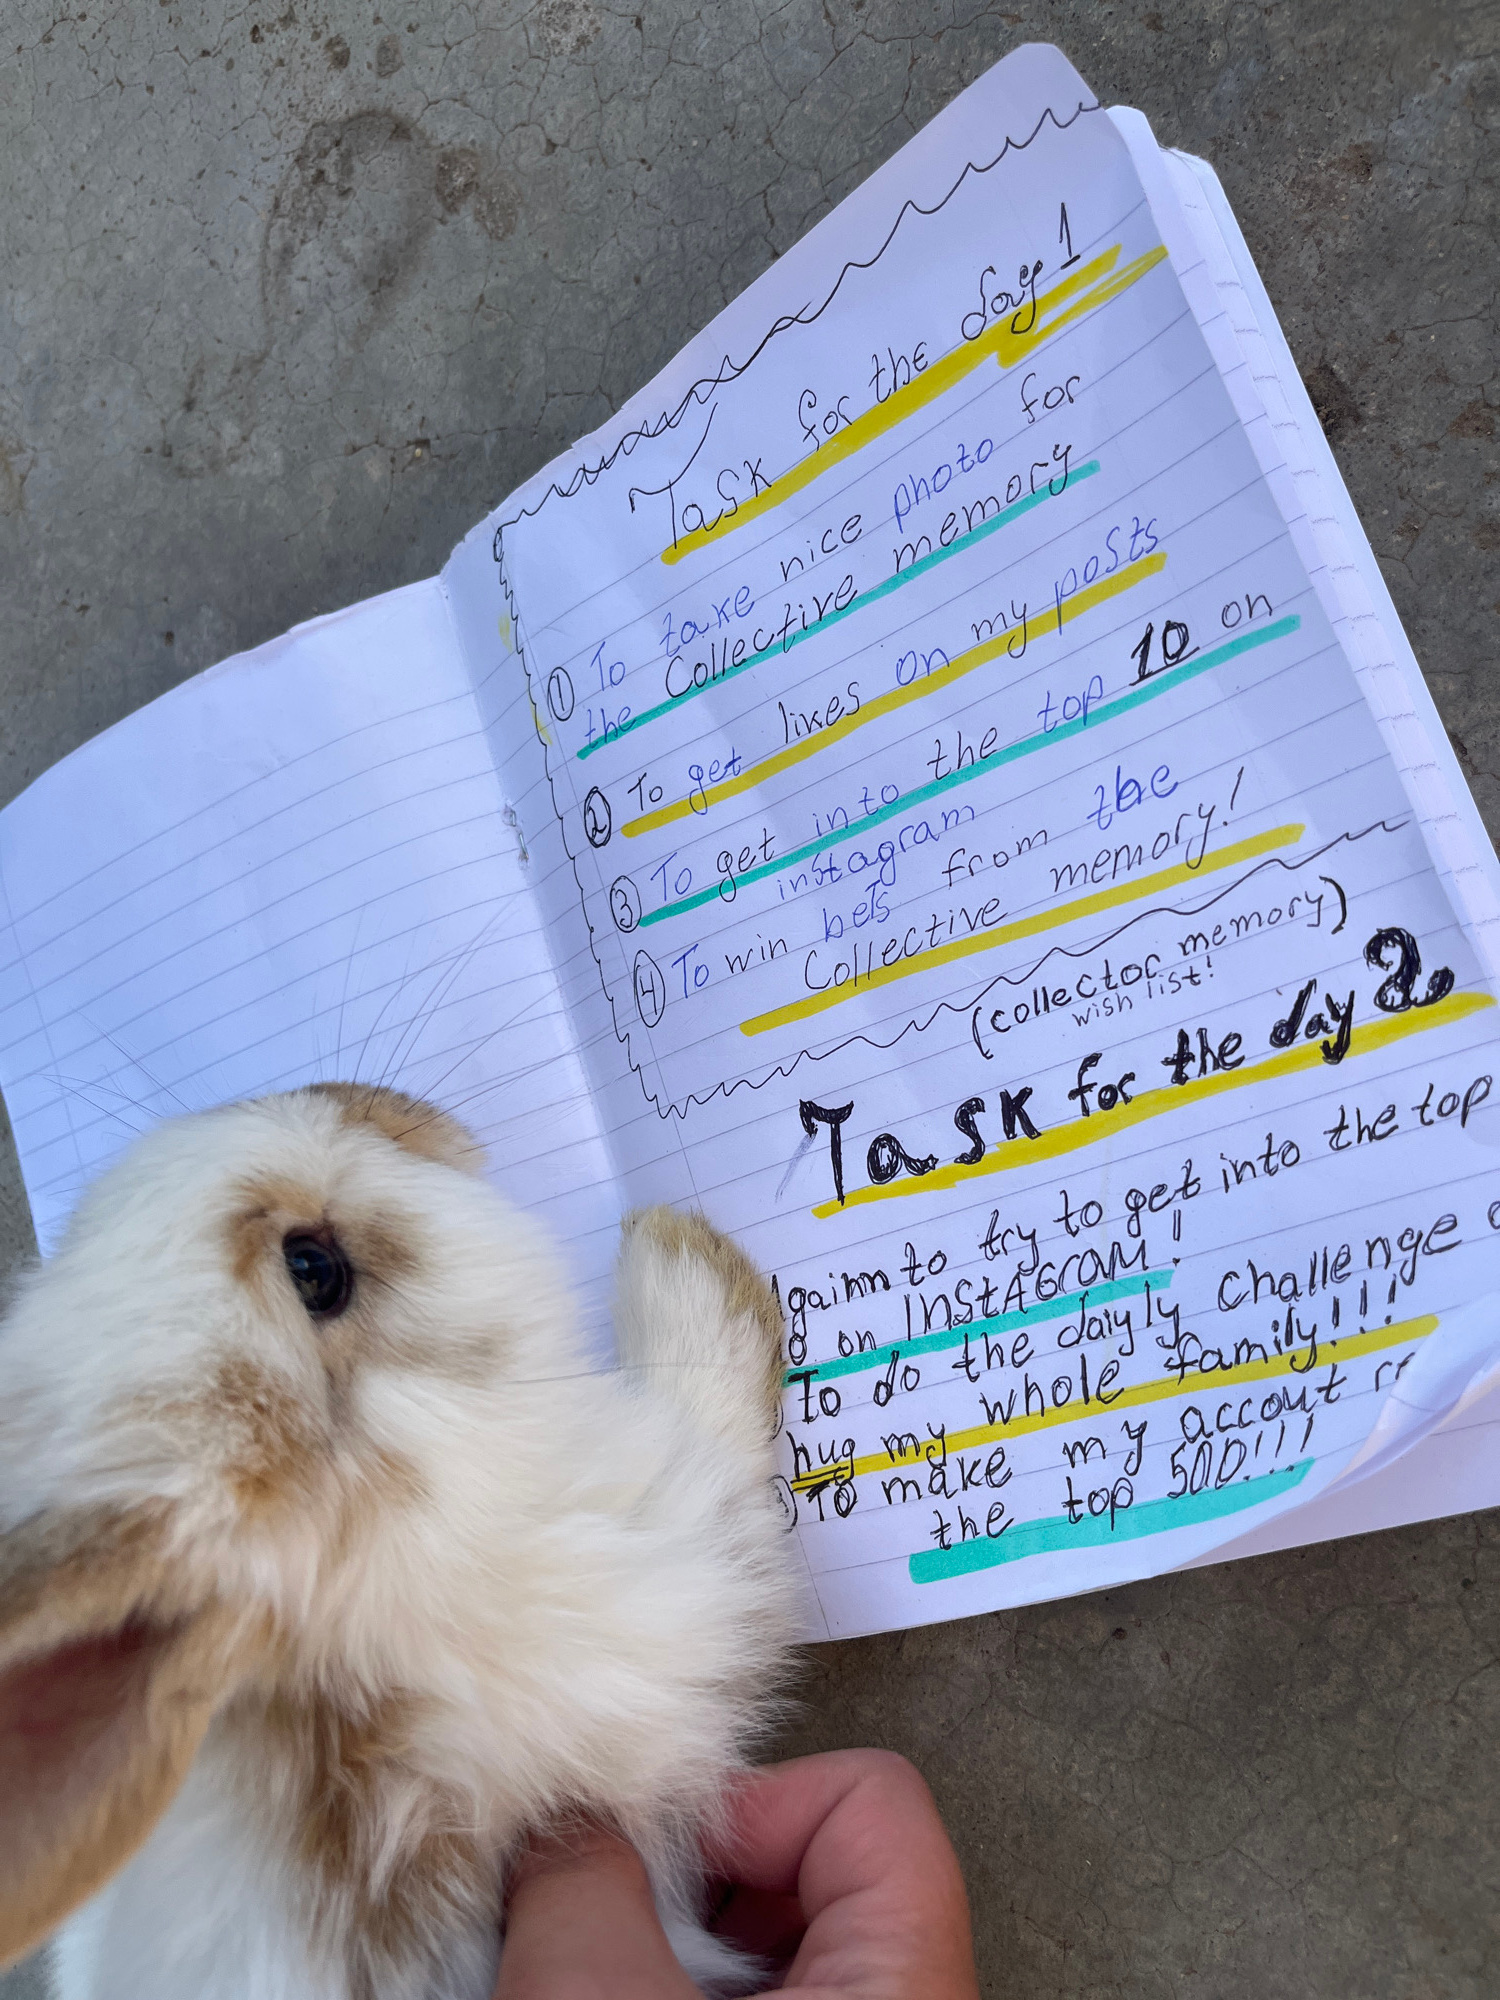 Task for the day 1
① To take nice photo for
the Collective memory
② To get likes on my posts
③ To get into the top 10 on
instagram
④ To win bets from the
Collective memory!
(collector memory)
wish list!
Task for the day 2
gainn to try to get into the top
on INStAGram!
To do the daiyly challenge
hug my whole family!!!
To make my accout
the top 500!!!